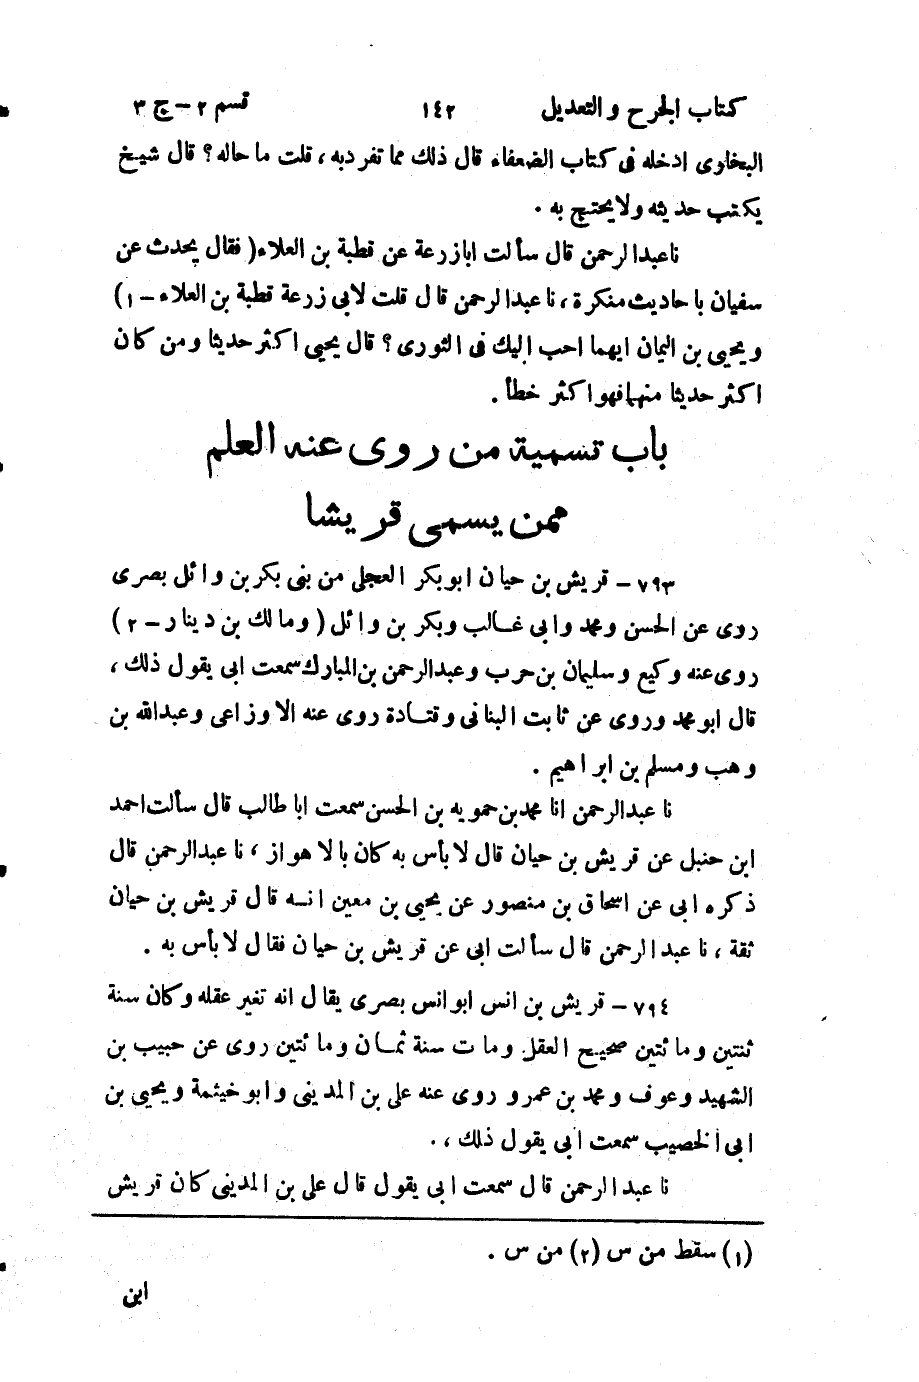 كتاب الجرح والتعديل ١٤٢ قسم ٢ – ج ٣
البخارى ادخله فى كتاب الضعفاء قال ذلك مما تفرد به ، قلت ما حاله ؟ قال شيخ
يكتب حديثه ولا يحتج به .
نا عبد الرحمن قال سألت ابا زرعة عن قطبة بن العلاء ( فقال يحدث عن
سفيان باحاديث منكرة ، نا عبد الرحمن قال قلت لابى زرعة قطبة بن العلاء – ١ )
ويحيى بن اليمان ايهما احب اليك فى الثورى ؟ قال يحيى اكثر حديثا ومن كان
اكثر حديثا منهما فهو اكثر خطأ .
باب تسمية من روى عنه العلم
ممن يسمى قريشا
٧٩٣ – قريش بن حيان ابو بكر العجلى من بنى بكر بن وائل بصرى
روى عن الحسن ومحمد وابى غالب وبكر بن وائل ( ومالك بن دينار – ٢ )
روى عنه وكيع وسليمان بن حرب وعبد الرحمن بن المبارك سمعت ابى يقول ذلك ،
قال ابو محمد وروى عن ثابت البنانى وقتادة روى عنه الاوزاعى وعبد الله بن
وهب ومسلم بن ابراهيم .
نا عبد الرحمن انا محمد بن حمويه بن الحسن سمعت ابا طالب قال سألت احمد
ابن حنبل عن قريش بن حيان قال لا بأس به كان بالاهواز ، نا عبد الرحمن قال
ذكره ابى عن اسحاق بن منصور عن يحيى بن معين انه قال قريش بن حيان
ثقة ، نا عبد الرحمن قال سألت ابى عن قريش بن حيان فقال لا بأس به .
٧٩٤ – قريش بن انس ابو انس بصرى يقال انه تغير عقله وكان سنة
ثنتين ومائتين صحيح العقل ومات سنة ثمان ومائتين روى عن حبيب بن
الشهيد وعوف ومحمد بن عمرو روى عنه على بن المدينى وابو خيثمة ويحيى بن
ابى الخصيب سمعت ابى يقول ذلك ، .
نا عبد الرحمن قال سمعت ابى يقول قال على بن المدينى كان قريش
(١) سقط من س (٢) من س .
ابن